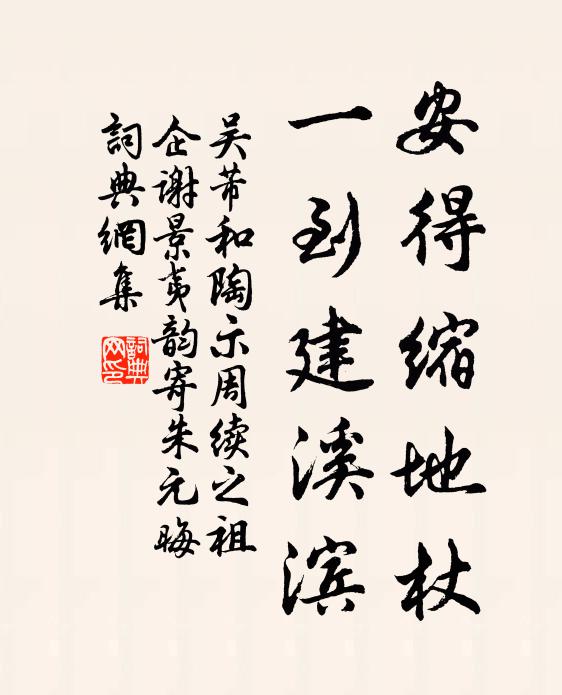 安得缩地杖
一到建溪滨
吴芾和陶示周续之祖
企谢景夷韵寄朱元晦
詞典網集
詞典
网印